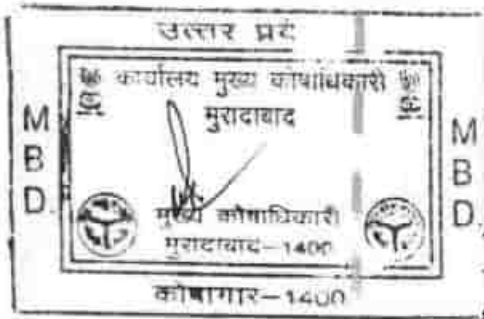 उत्तर प्रदे
कार्यालय मुख्य कोषाधिकारी
मुरादाबाद
M
B
D.
M
B
D.
मुख्य कोषाधिकारी
मुरादाबाद-1400
कोषागार-1400